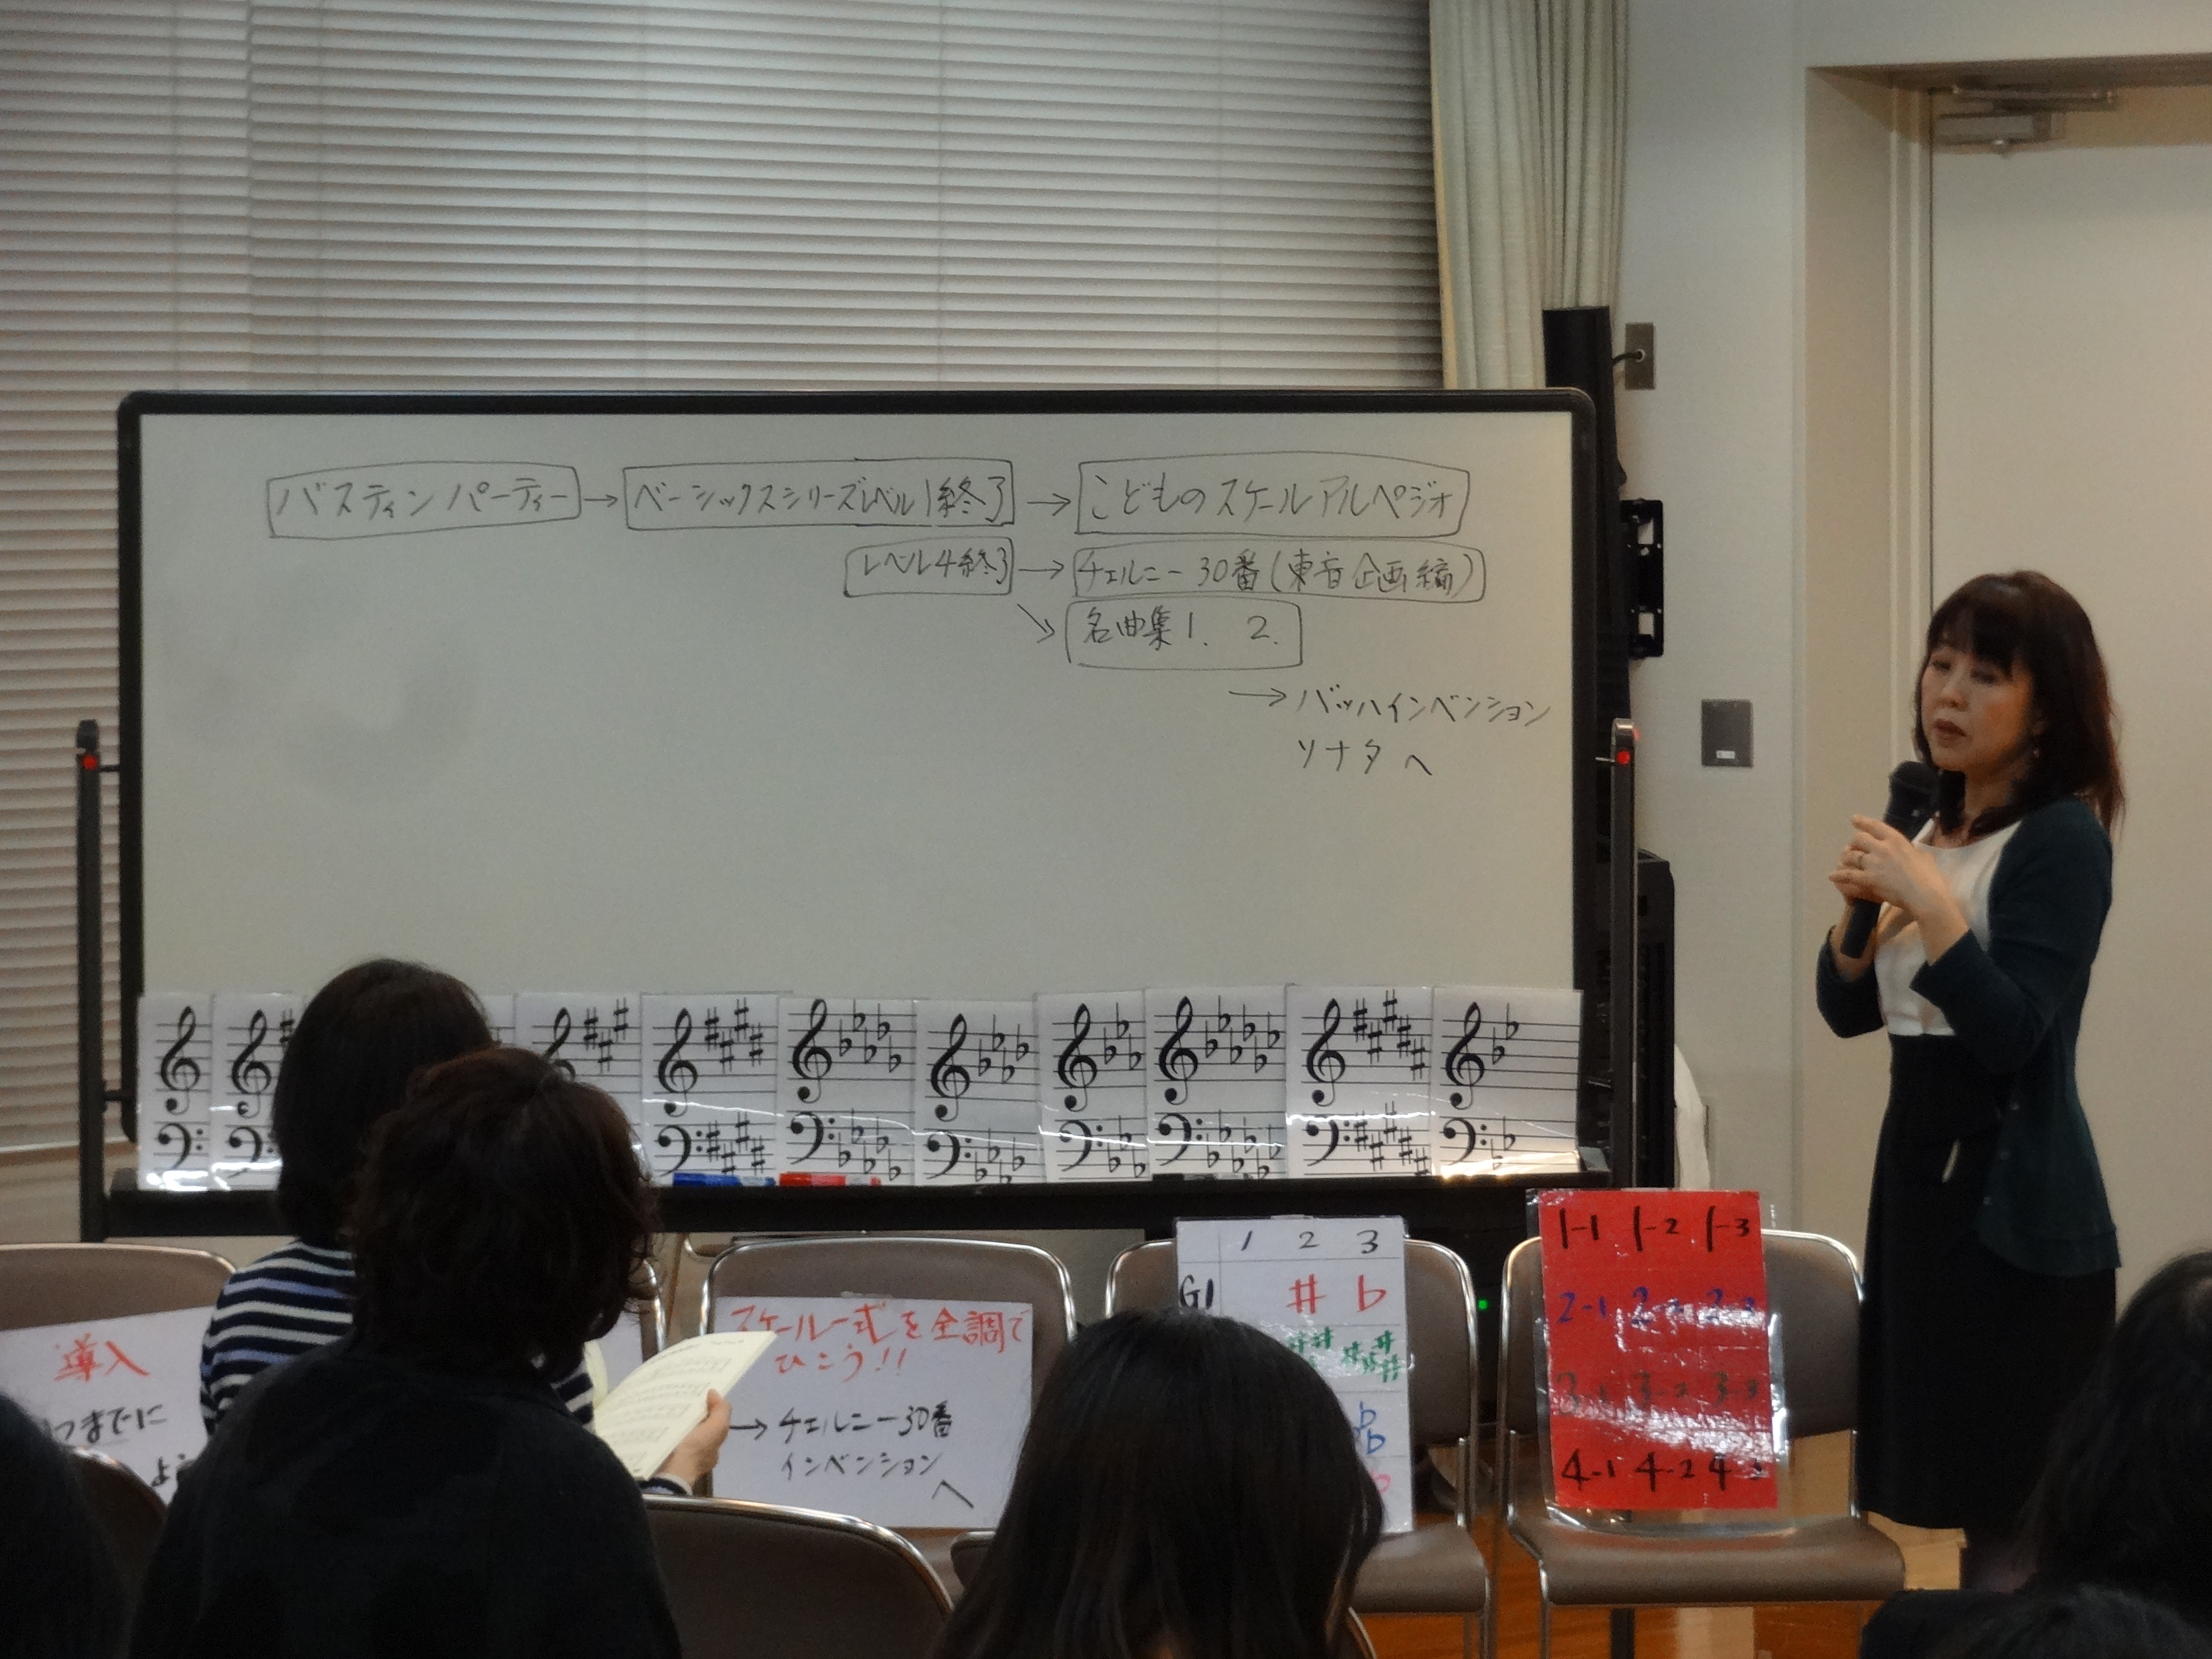 バスティン パーティー → ベーシックスシリーズレベル1終了 → こどものスケールアルペジオ
レベル4終了 → チェルニー30番(東音企画編)
名曲集1. 2.
→ バッハインベンション
ソナタへ
導入
つまでに
スケール一式を全調で
ひこう!!
→ チェルニー30番
インベンション
へ
1 2 3
G1 # b
1-1 1-2 1-3
2-1 2-2 2-3
3-1 3-2 3-3
4-1 4-2 4-3